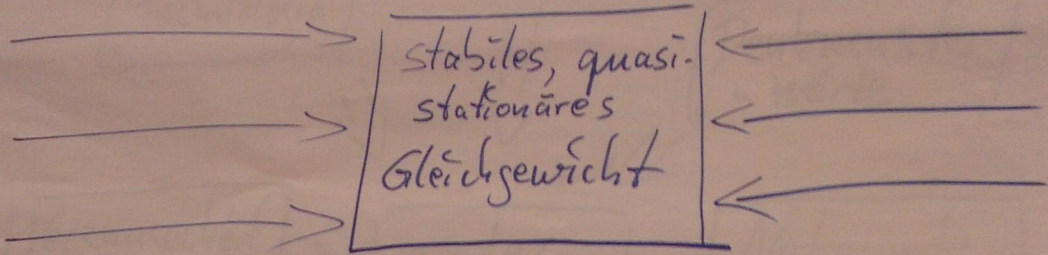 stabiles, quasi-
stationäres
Gleichgewicht